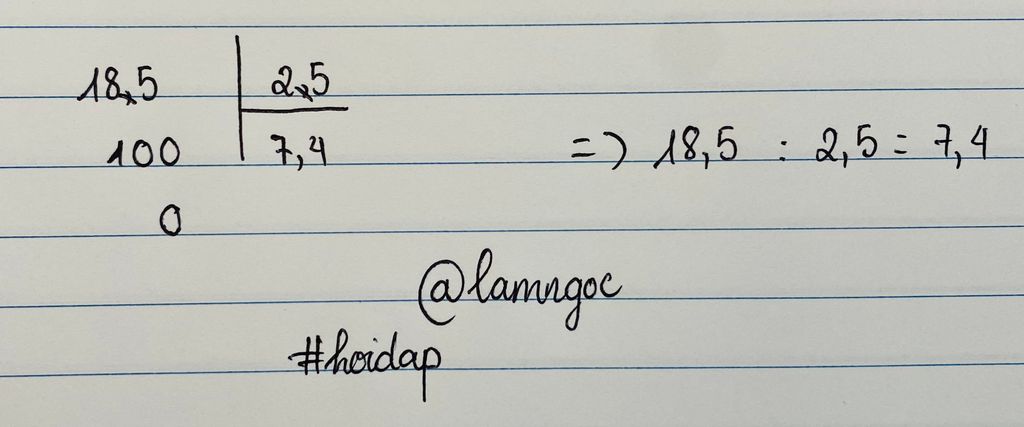 18,5 | 2,5
100 | 7,4 => 18,5 : 2,5 = 7,4
0
@lamngoc
#hoidap